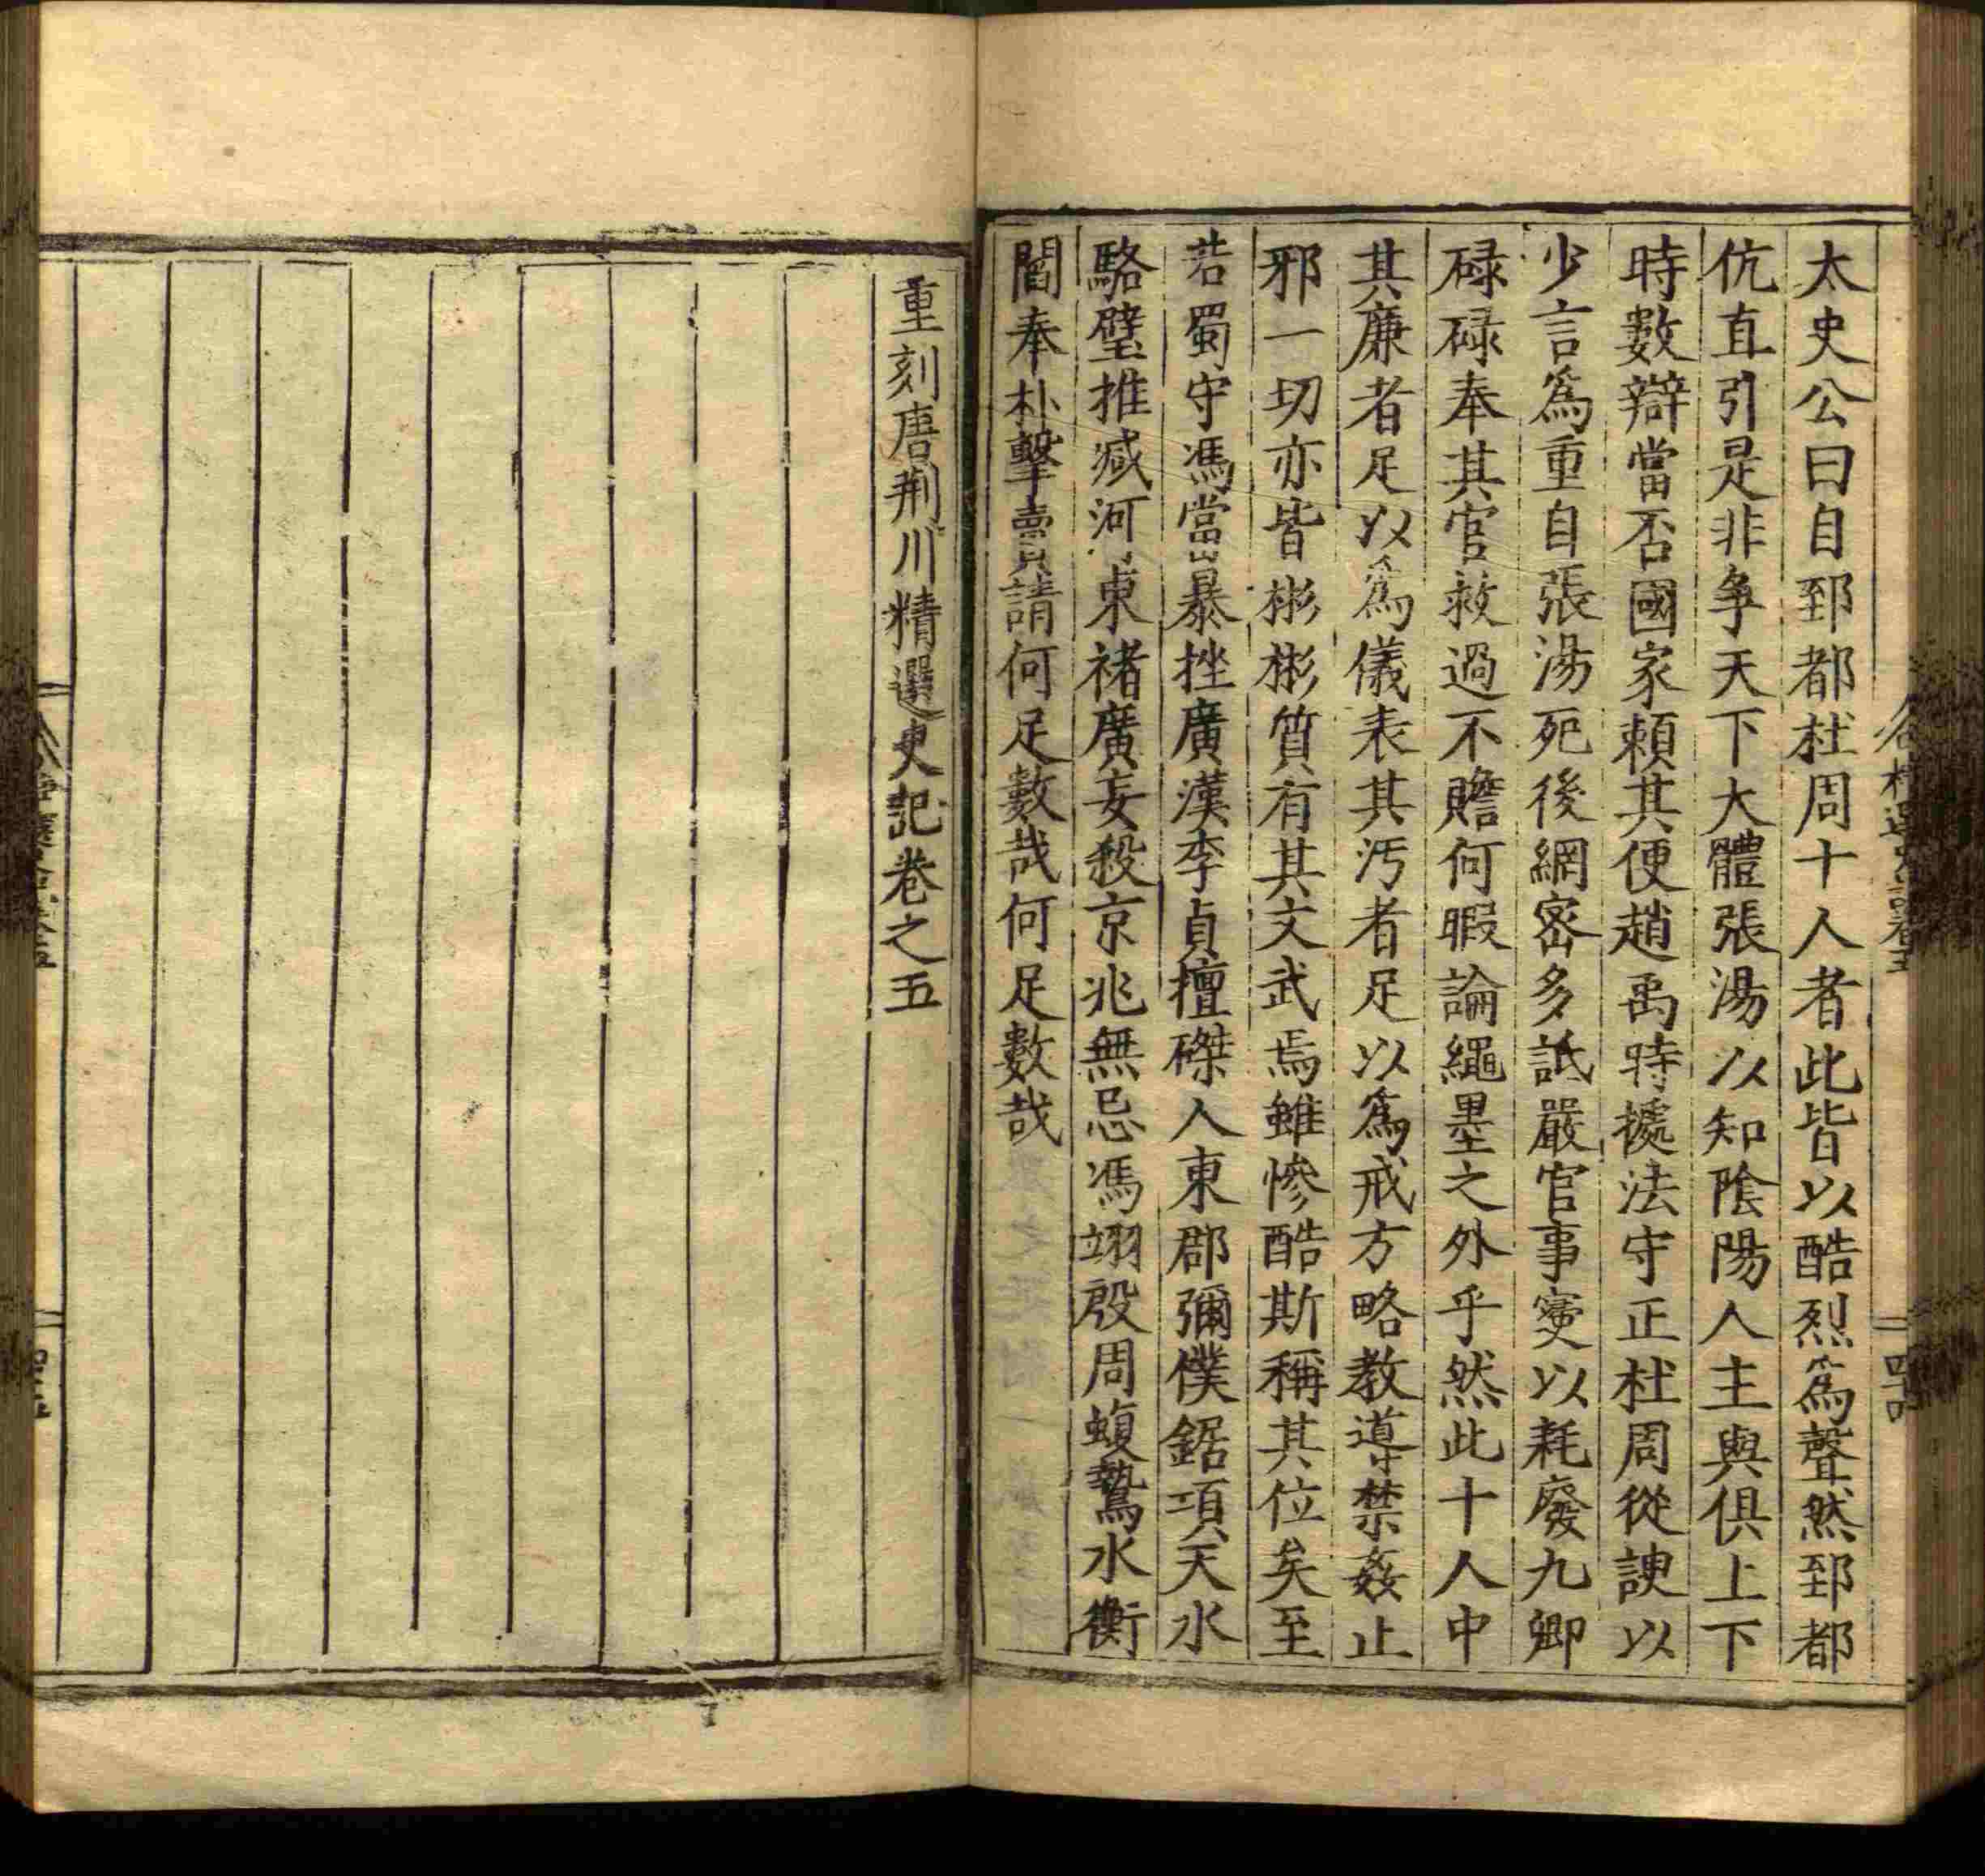 太史公曰自郅都杜周十人者此皆以酷烈爲聲然郅都
伉直引是非爭天下大體張湯以知陰陽人主與俱上下
時數辯當否國家賴其便趙禹時據法守正杜周從諛以
少言爲重自張湯死後網密多詆嚴官事寖以耗廢九卿
碌碌奉其官救過不贍何暇論繩墨之外乎然此十人中
其廉者足以爲儀表其汚者足以爲戒方略教導禁姦止
邪一切亦皆彬彬質有其文武焉雖慘酷斯稱其位矣至
若蜀守馮當暴挫廣漢李貞擅磔人東郡彌僕鋸項天水
駱璧推減河東褚廣妄殺京兆無忌馮翊殷周蝮鷙水衡
閻奉朴擊賣請何足數哉何足數哉
重刻唐荆川精選史記卷之五